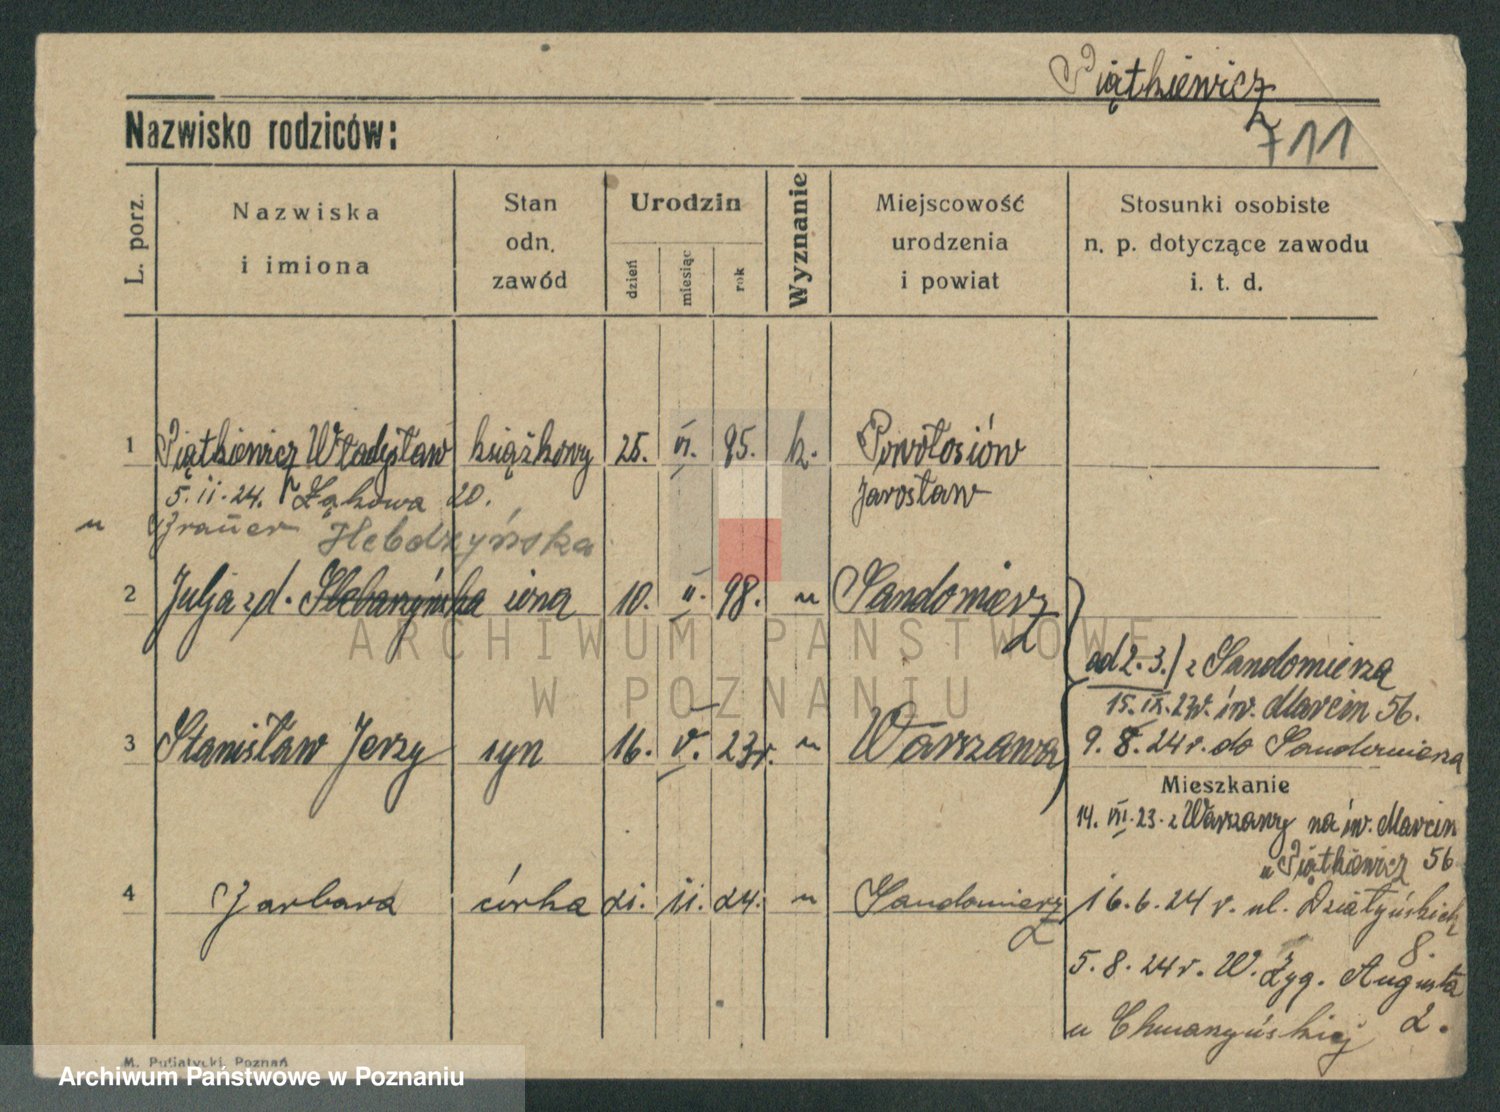 Piątkiewicz
711
Nazwisko rodziców:
L. porz.
Nazwiska
i imiona
Stan
odn.
zawód
Urodzin
dzień
miesiąc
rok
Wyznanie
Miejscowość
urodzenia
i powiat
Stosunki osobiste
n. p. dotyczące zawodu
i. t. d.
1 Piątkiewicz Władysław książkowy 25. VI. 95. k. Powołosiów
5. II. 24. Łąkowa 20. Jarosław
u Hebdzyńska
2 Julja zd. żona 10. II. 98. " Sandomierz
ad 2. 3./ z Sandomierza
15. IX. 23r. św. Marcin 56.
3 Stanisław Jerzy syn 16. V. 23r. " Warszawa 9. 8. 24 r. do Sandomierza
Mieszkanie
14. VII. 23. z Warszawy na św. Marcin
u Piątkiewicz 56
4 Barbara córka 21. II. 24. " Sandomierz 16. 6. 24 r. ul. Działyńskich
8.
5. 8. 24 r. W. Zyg. Augusta
u 2.
M. Putiatycki, Poznań
ARCHIWUM PAŃSTWOWE
W POZNANIU
Archiwum Państwowe w Poznaniu